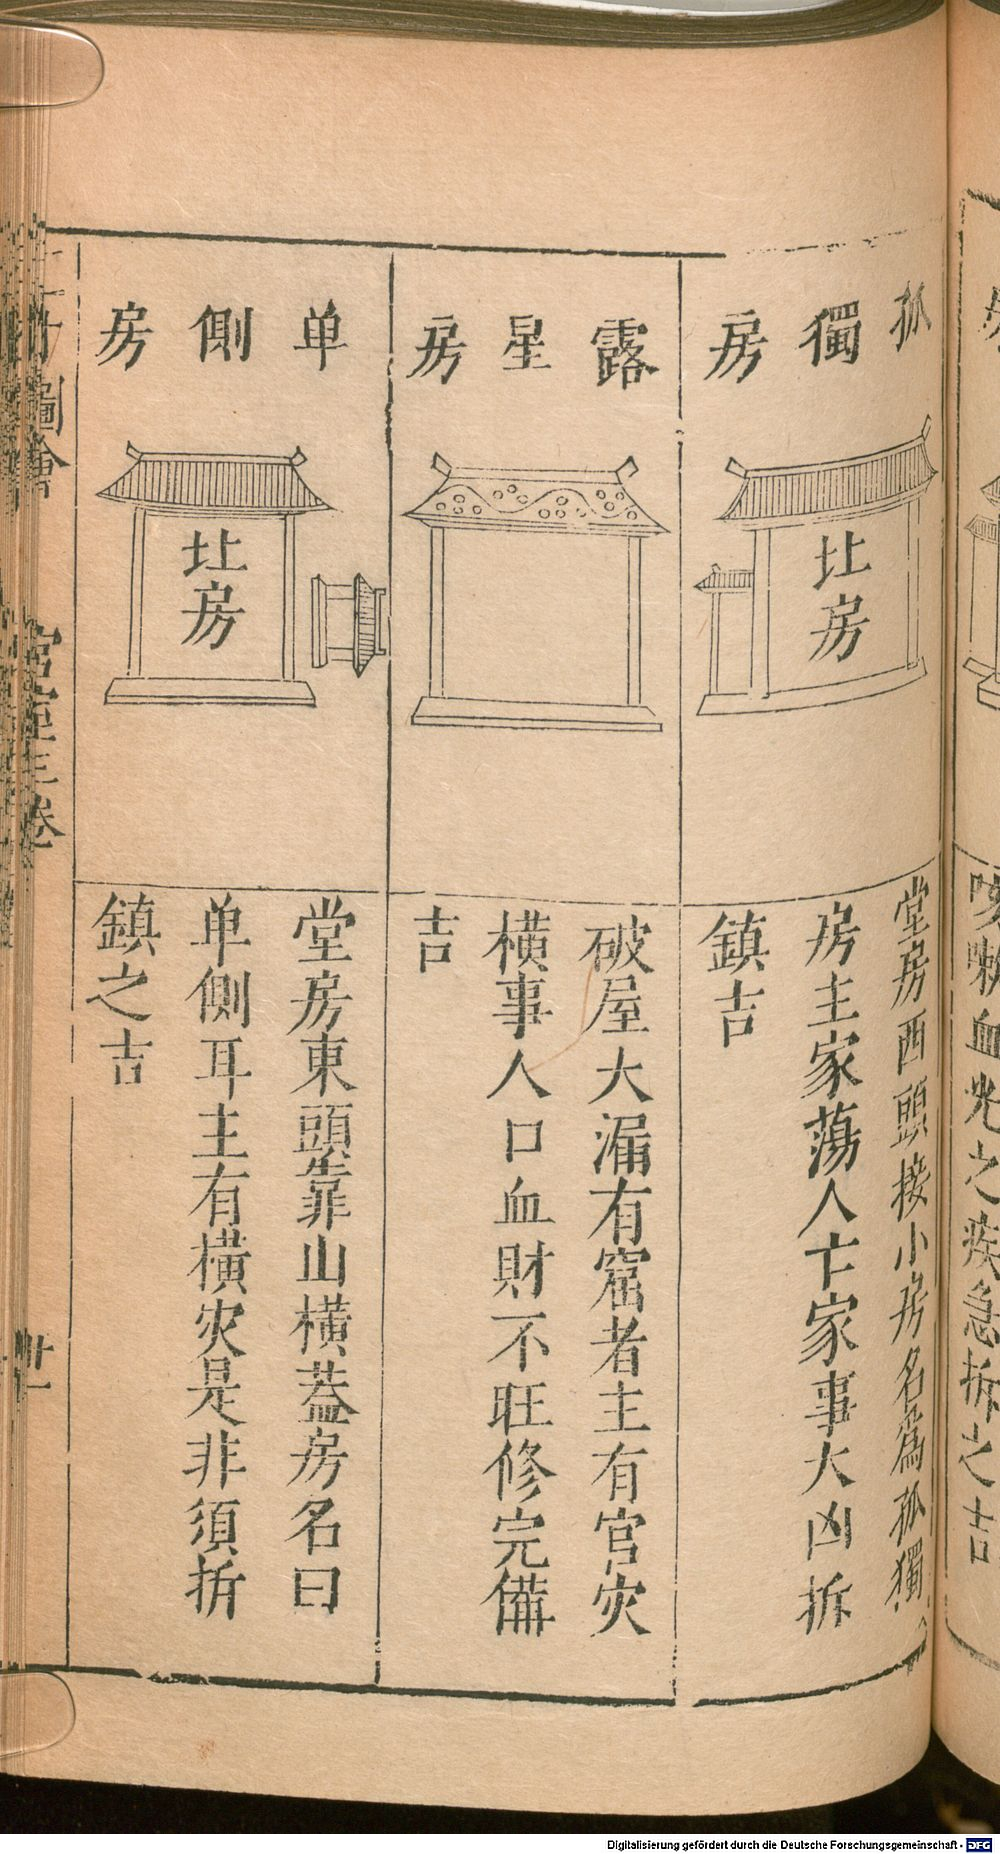 咳嗽血光之疾急拆之吉
孤獨房
北房
堂房西頭接小房名爲孤獨
房主家蕩人亡家事大凶拆
鎮吉
露星房
破屋大漏有窟者主有官灾
橫事人口血財不旺修完備
吉
单側房
北房
堂房東頭靠山橫蓋房名曰
单側耳主有橫灾是非須拆
鎮之吉
圖會
宮室三卷
Digitalisierung gefördert durch die Deutsche Forschungsgemeinschaft - DFG